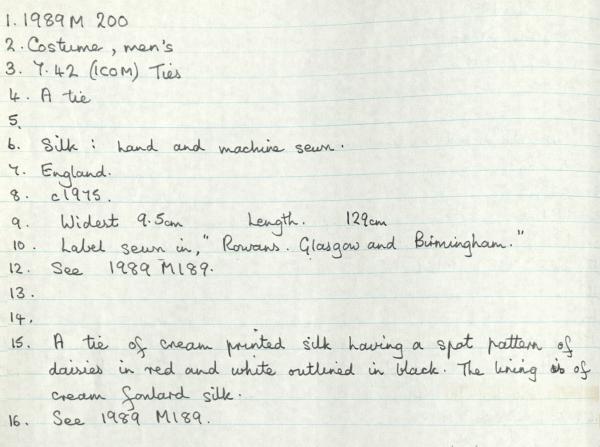 1. 1989 M 200
2. Costume, men's
3. 7.42 (ICOM) Ties
4. A tie
5.
6. Silk : hand and machine sewn.
7. England.
8. c1975.
9. Widest 9.5cm Length. 129cm
10. Label sewn in, "Rowans. Glasgow and Birmingham."
12. See 1989 M189.
13.
14.
15. A tie of cream printed silk having a spot pattern of
daisies in red and white outlined in black. The lining is of
cream foulard silk.
16. See 1989 M189.